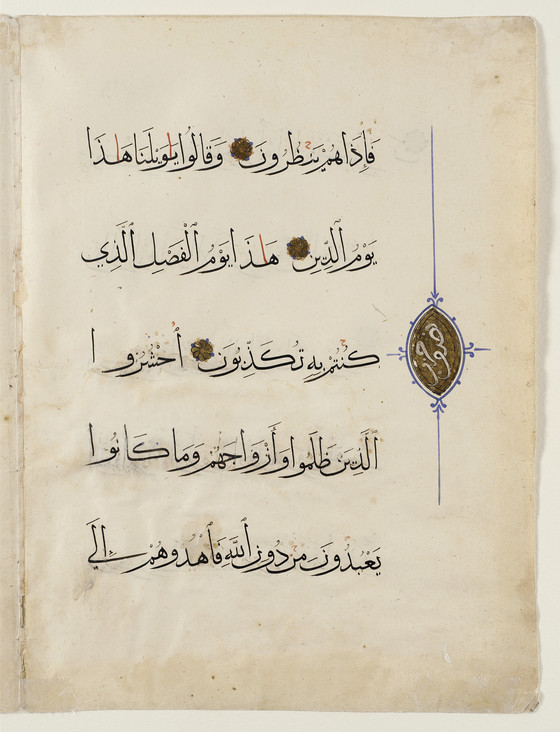 فَإِذَا هُمْ يَنظُرُونَ وَقَالُوا يَاوَيْلَنَا هَاذَا
يَوْمُ ٱلدِّينِ هَاذَا يَوْمُ ٱلْفَصْلِ ٱلَّذِي
كُنتُمْ بِهِ تُكَذِّبُونَ ٱحْشُرُوا
ٱلَّذِينَ ظَلَمُوا وَأَزْوَاجَهُمْ وَمَا كَانُوا
يَعْبُدُونَ مِن دُونِ ٱللَّهِ فَٱهْدُوهُمْ إِلَى